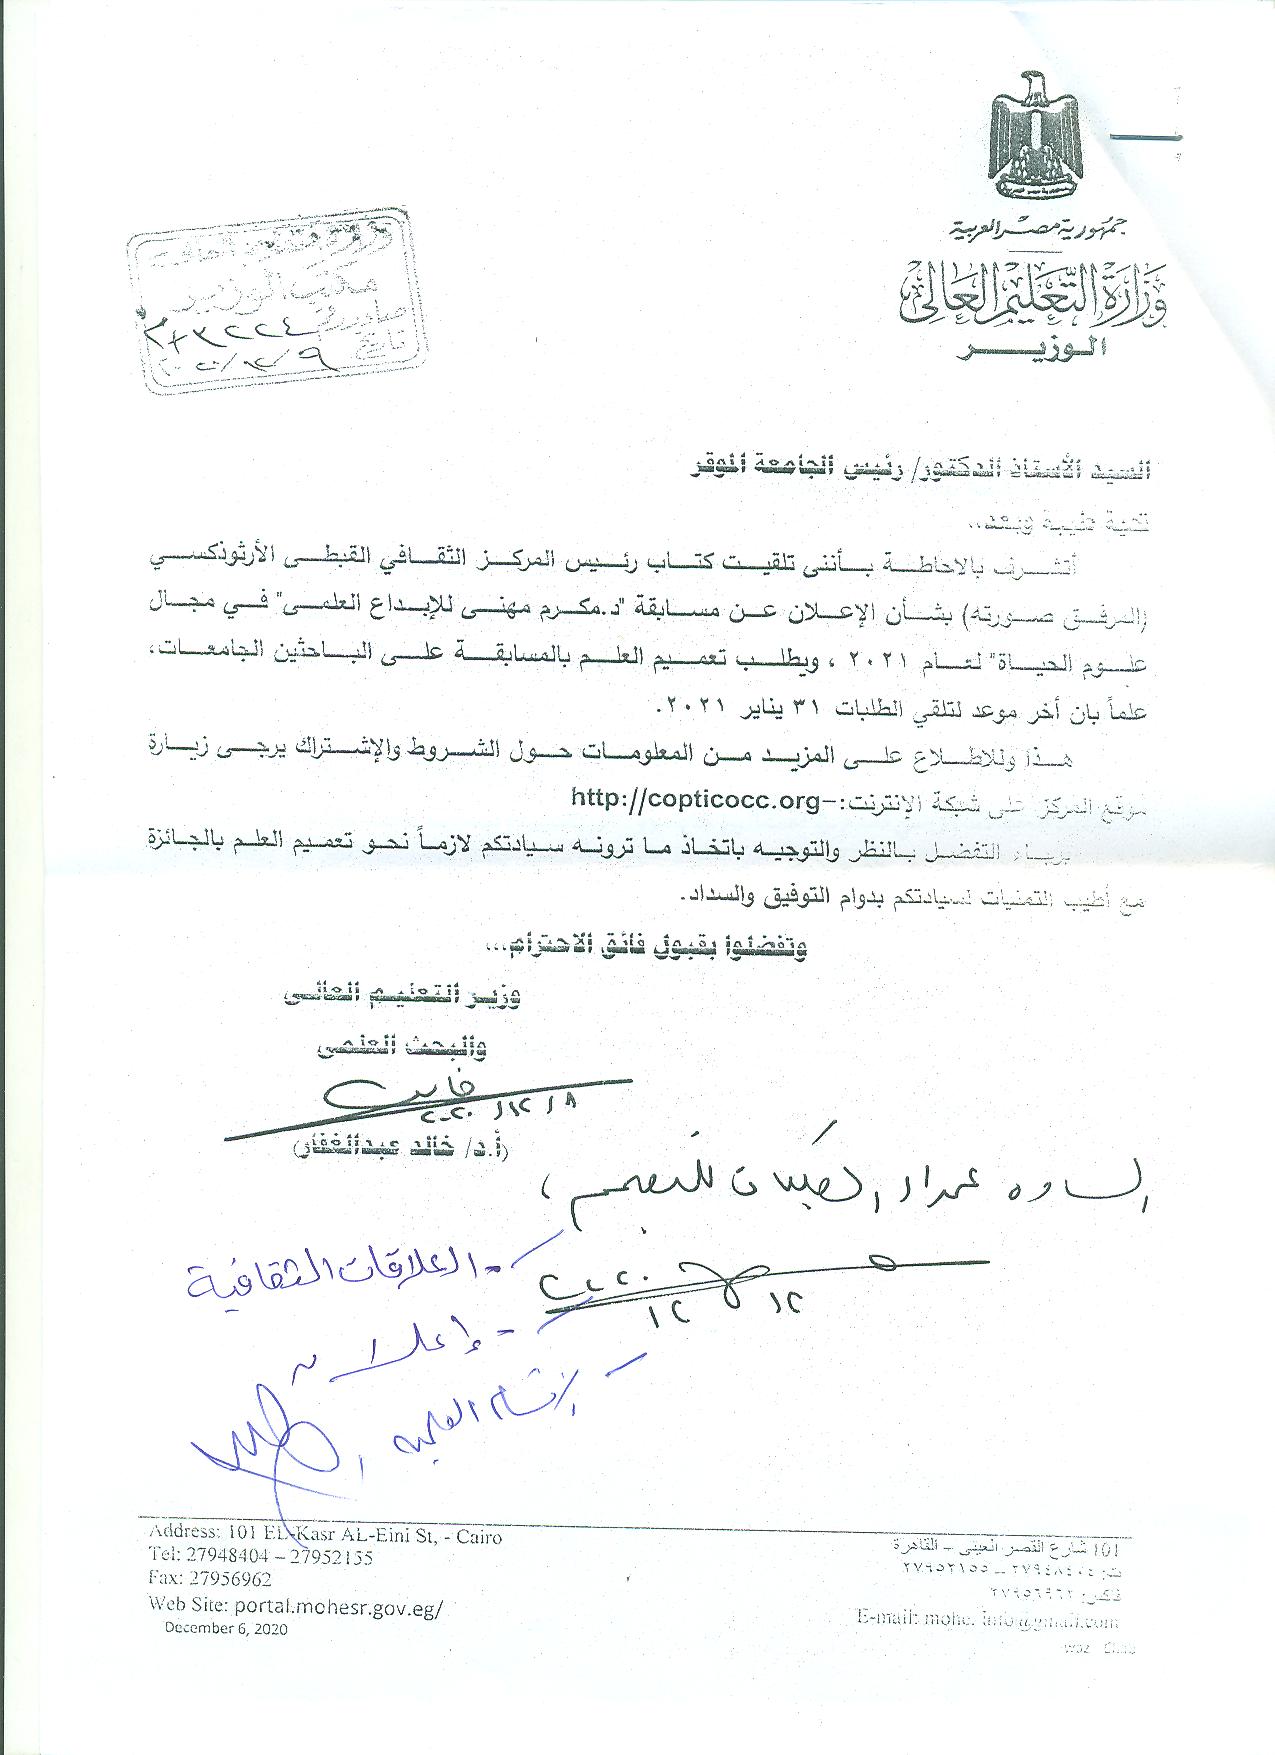 جمهورية مصر العربية
وزارة التعليم العالى
الوزير
مكتب الوزير
صادر رقم
تاريخ
السيد الأستاذ الدكتور/ رئيس الجامعة الموقر
تحية طيبة وبعد..
أتشرف بالاحاطة بأننى تلقيت كتاب رئيس المركز الثقافي القبطى الأرثوذكسي
(المرفق صورته) بشأن الإعلان عن مسابقة "د.مكرم مهنى للإبداع العلمى" في مجال
علوم الحياة" لعام ٢٠٢١ ، ويطلب تعميم العلم بالمسابقة على الباحثين الجامعات،
علماً بان أخر موعد لتلقي الطلبات ٣١ يناير ٢٠٢١.
هذا وللاطلاع على المزيد من المعلومات حول الشروط والإشتراك يرجى زيارة
موقع المركز على شبكة الإنترنت:-http://copticocc.org
برجاء التفضل بالنظر والتوجيه باتخاذ ما ترونه سيادتكم لازماً نحو تعميم العلم بالجائزة
مع أطيب التمنيات لسيادتكم بدوام التوفيق والسداد.
وتفضلوا بقبول فائق الاحترام...
وزير التعليم العالى
والبحث العلمى
٢٠٢٠/١٢/٨
(أ.د/ خالد عبدالغفار)
الساده عمداء الكليات للتعميم،
٢٠٢٠
١٢ ١٢
- العلاقات الثقافية
- إعلان
الأقسام العلمية
Address: 101 EL-Kasr AL-Eini St, - Cairo
Tel: 27948404 – 27952155
Fax: 27956962
Web Site: portal.mohesr.gov.eg/
December 6, 2020
101 شارع القصر العينى – القاهرة
ت: ٢٧٩٤٨٤٠٤ – ٢٧٩٥٢١٥٥
فاكس: ٢٧٩٥٦٩٦٢
E-mail: mohe. info@gmail.com